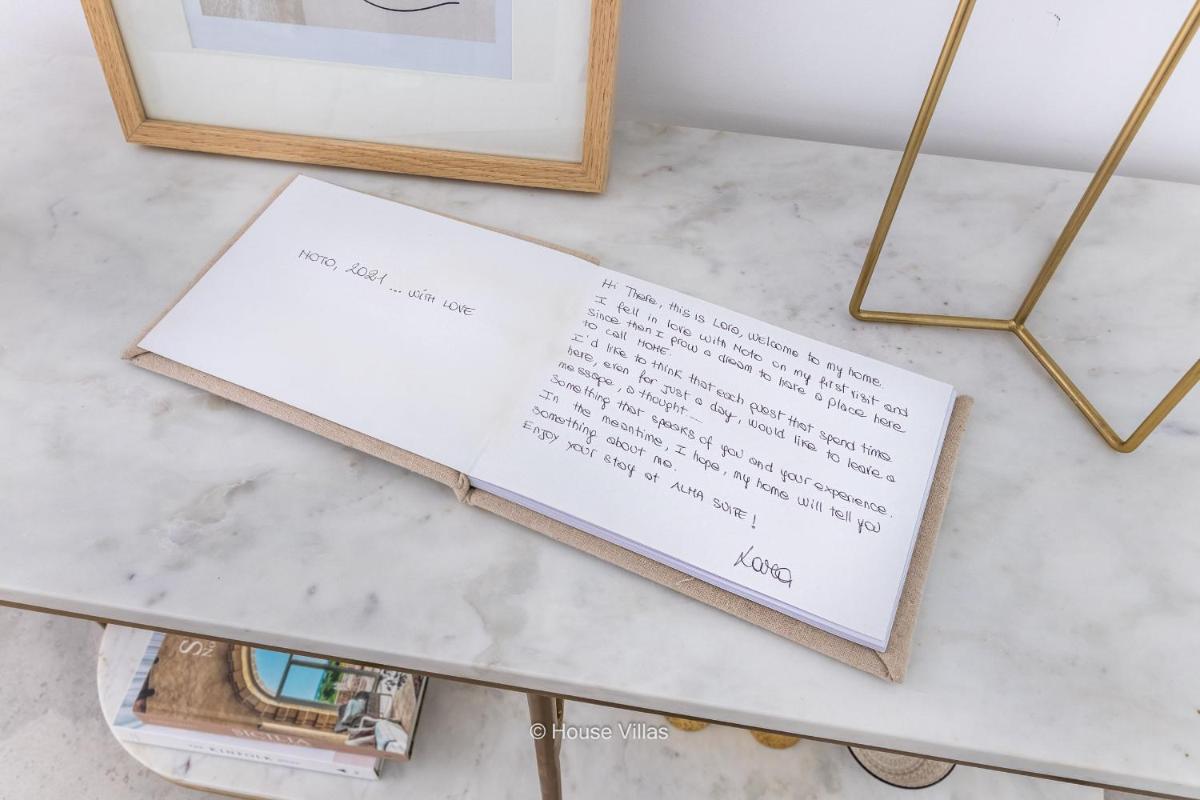 NOTO, 2021 ... WITH LOVE
Hi There, this is Lara, welcome to my home.
I fell in love with Noto on my first visit and
since then I grow a dream to have a place here
to call HOME.
I'd like to think that each guest that spend time
here, even for just a day, would like to leave a
message, a thought —
Something that speaks of you and your experience.
In the meantime, I hope, my home will tell you
something about me.
Enjoy your stay at ALMA SUITE!
Lara
SICILIA
THE KINFOLK
© House Villas